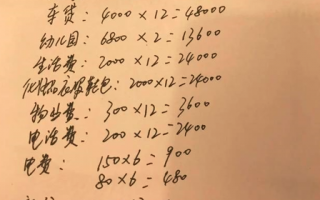 车贷：4000×12=48000
幼儿园：6800×2=13600
生活费：2000×12=24000
化妆品衣服鞋包：2000×12=24000
物业费：300×12=3600
电话费：200×12=2400
电费：150×6=900
80×6=480